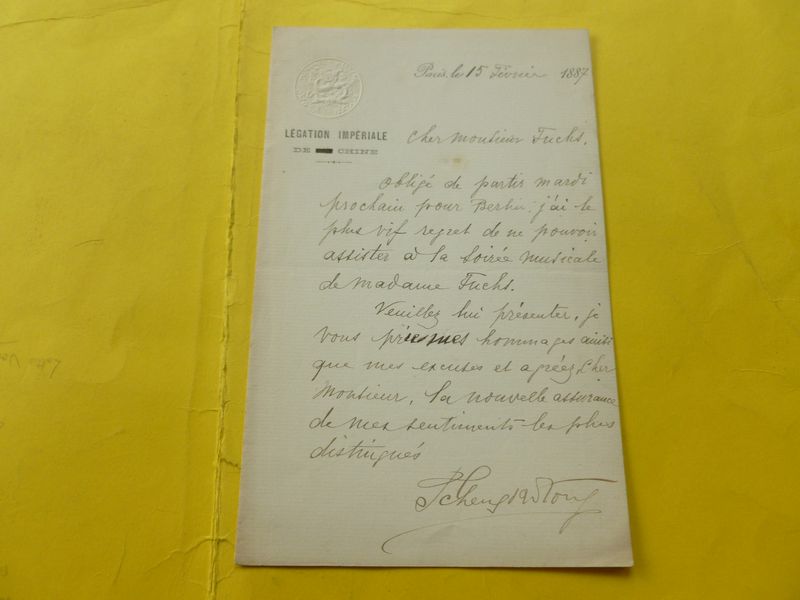 Paris, le 15 Février 1887
LÉGATION IMPÉRIALE
DE CHINE
Cher Monsieur Fuchs,
Obligé de partir mardi
prochain pour Berlin, j'ai le
plus vif regret de ne pouvoir
assister à la soirée musicale
de Madame Fuchs.
Veuillez lui présenter, je
vous prie mes hommages ainsi
que mes excuses et agréez, Cher
Monsieur, la nouvelle assurance
de mes sentiments les plus
distingués
Tcheng Ki Tong